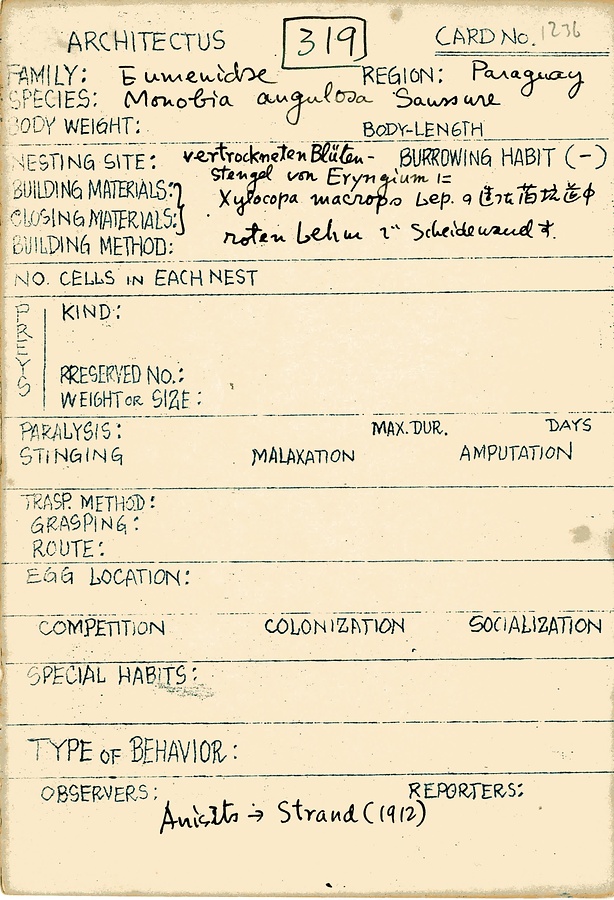 ARCHITECTUS 319 CARD No. 1236
FAMILY: Eumenidae REGION: Paraguay
SPECIES: Monobia angulosa Saussure
BODY WEIGHT: BODY-LENGTH
NESTING SITE: vertrockneten Blüten- BURROWING HABIT (-)
stengel von Eryngium ニ
BUILDING MATERIALS: Xylocopa macrops Lep. の
CLOSING MATERIALS:
BUILDING METHOD: roten Lehm デ Scheidewand
NO. CELLS IN EACH NEST
PREYS
KIND:
PRESERVED NO.:
WEIGHT OR SIZE:
PARALYSIS: MAX. DUR. DAYS
STINGING MALAXATION AMPUTATION
TRASP. METHOD:
GRASPING:
ROUTE:
EGG LOCATION:
COMPETITION COLONIZATION SOCIALIZATION
SPECIAL HABITS:
TYPE OF BEHAVIOR:
OBSERVERS: REPORTERS:
Anisits → Strand (1912)